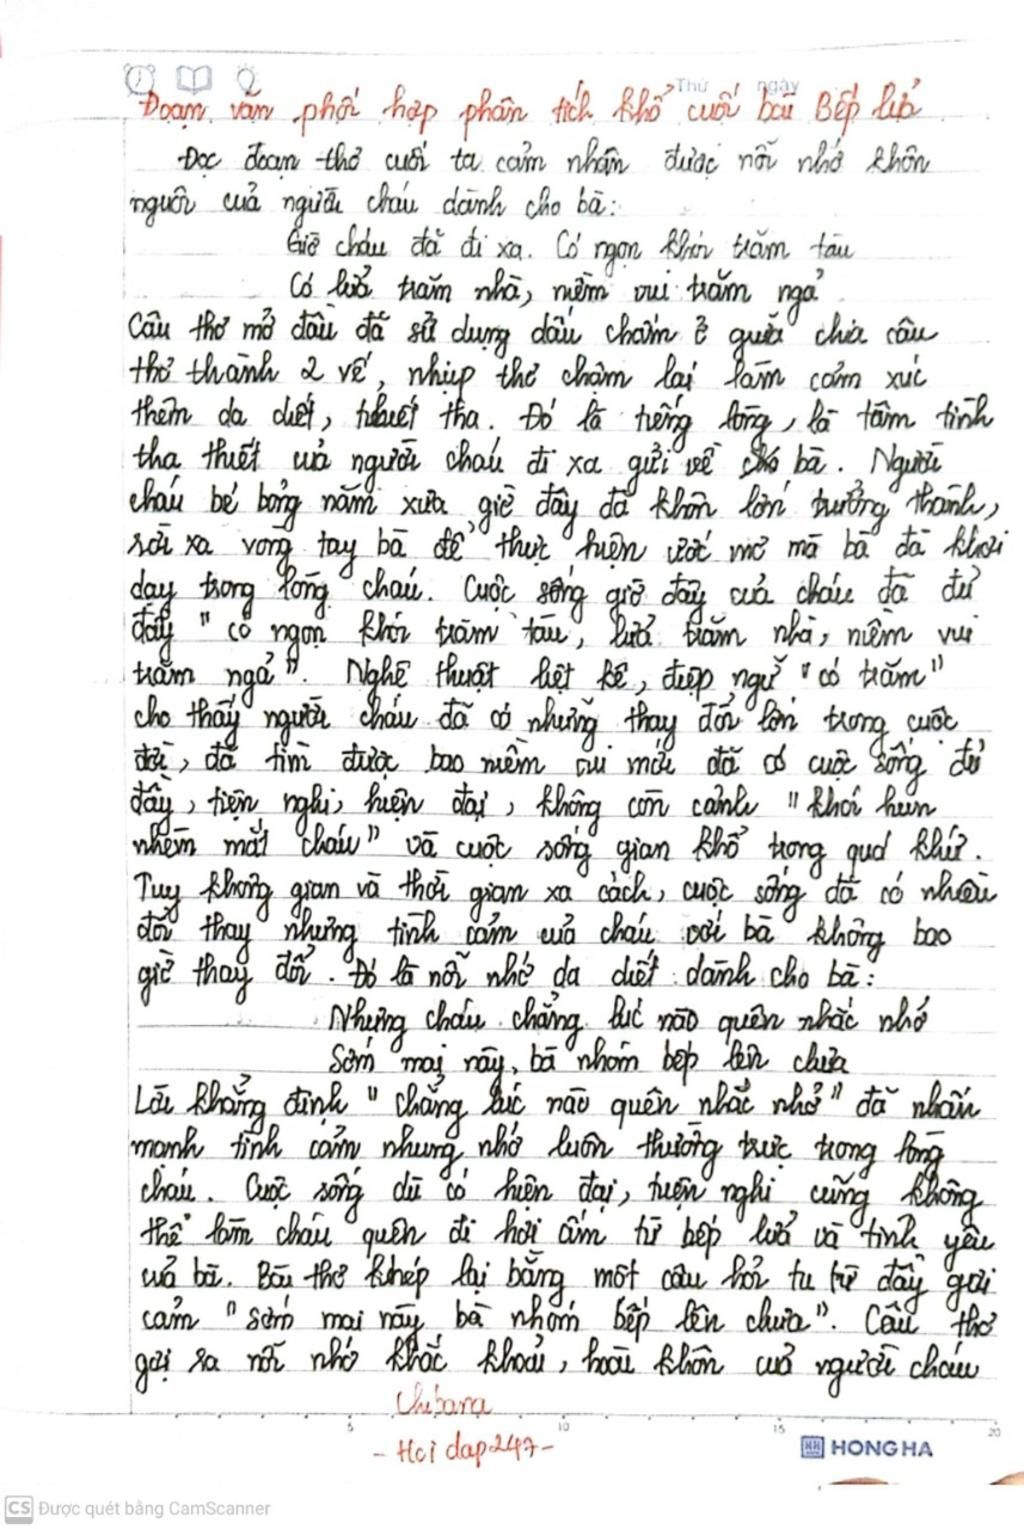 Thứ ngày
Đoạn văn phối hợp phân tích khổ cuối bài Bếp lửa
Đọc đoạn thơ cuối ta cảm nhận được nỗi nhớ khôn
nguôi của người cháu dành cho bà:
Giờ cháu đã đi xa. Có ngọn khói trăm tàu
Có lửa trăm nhà, niềm vui trăm ngả
Câu thơ mở đầu đã sử dụng dấu chấm ở giữa chia câu
thơ thành 2 vế, nhịp thơ chậm lại làm cảm xúc
thêm da diết, thiết tha. Đó là tiếng lòng, là tâm tình
tha thiết của người cháu đi xa gửi về cho bà. Người
cháu bé bỏng năm xưa giờ đây đã khôn lớn trưởng thành,
rời xa vòng tay bà để thực hiện ước mơ mà bà đã khơi
dạy trong lòng cháu. Cuộc sống giờ đây của cháu đã đủ
đầy "có ngọn khói trăm tàu, lửa trăm nhà, niềm vui
trăm ngả". Nghệ thuật liệt kê, điệp ngữ "có trăm"
cho thấy người cháu đã có những thay đổi lớn trong cuộc
đời, đã tìm được bao niềm vui mới đã có cuộc sống đủ
đầy, tiện nghi, hiện đại, không còn cảnh "khói hun
nhèm mắt cháu" và cuộc sống gian khổ trong quá khứ.
Tuy không gian và thời gian xa cách, cuộc sống đã có nhiều
đổi thay nhưng tình cảm của cháu với bà không bao
giờ thay đổi. Đó là nỗi nhớ da diết dành cho bà:
Nhưng cháu chẳng lúc nào quên nhắc nhở
Sớm mai này, bà nhóm bếp lên chưa
Lời khẳng định "chẳng lúc nào quên nhắc nhở" đã nhấn
mạnh tình cảm nhung nhớ luôn thường trực trong lòng
cháu. Cuộc sống dù có hiện đại, tiện nghi cũng không
thể làm cháu quên đi hơi ấm từ bếp lửa và tình yêu
của bà. Bài thơ khép lại bằng một câu hỏi tu từ đầy gợi
cảm "Sớm mai này bà nhóm bếp lên chưa". Câu thơ
gợi ra nỗi nhớ khắc khoải, hoài khôn của người cháu
Chibana
- Hoidap247-
5 10 15 20
HONG HA
CS Được quét bằng CamScanner